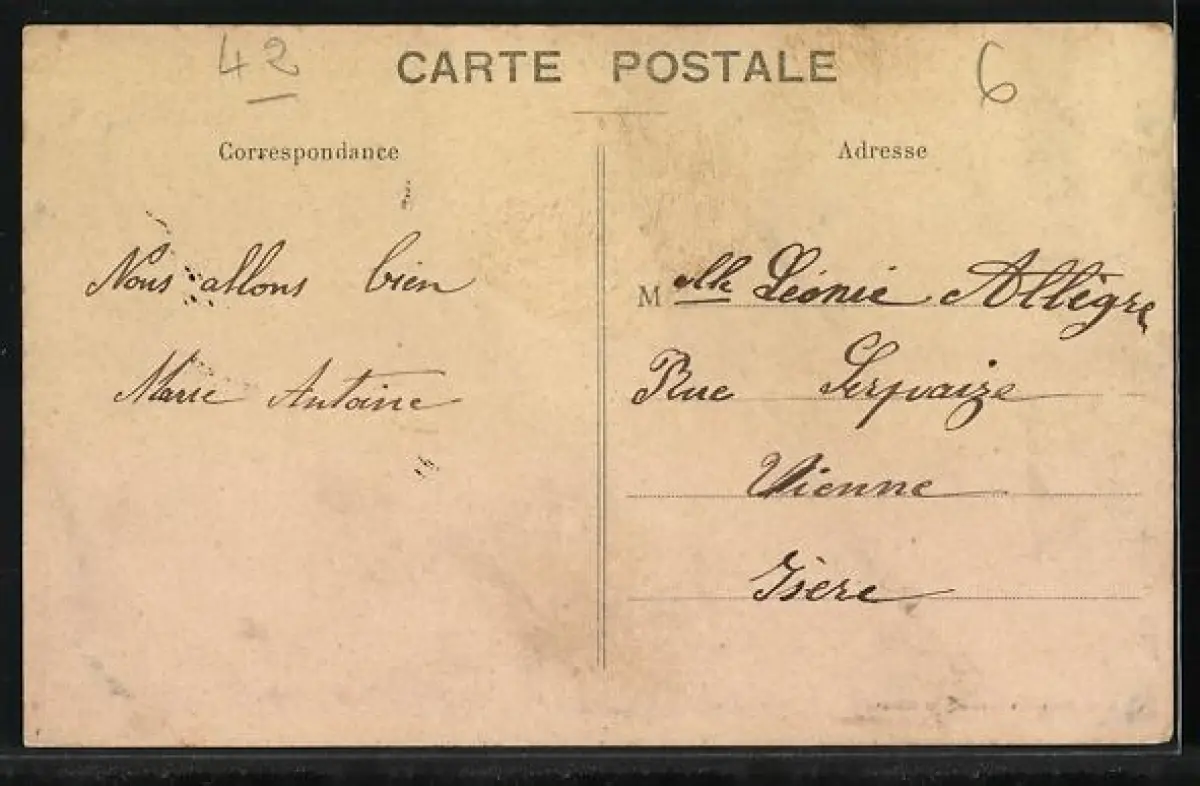 42
CARTE POSTALE
6
Correspondance
Nous allons bien
Marie Antoine
Adresse
Melle Léonie Allègre
Rue Serpaize
Vienne
Isère